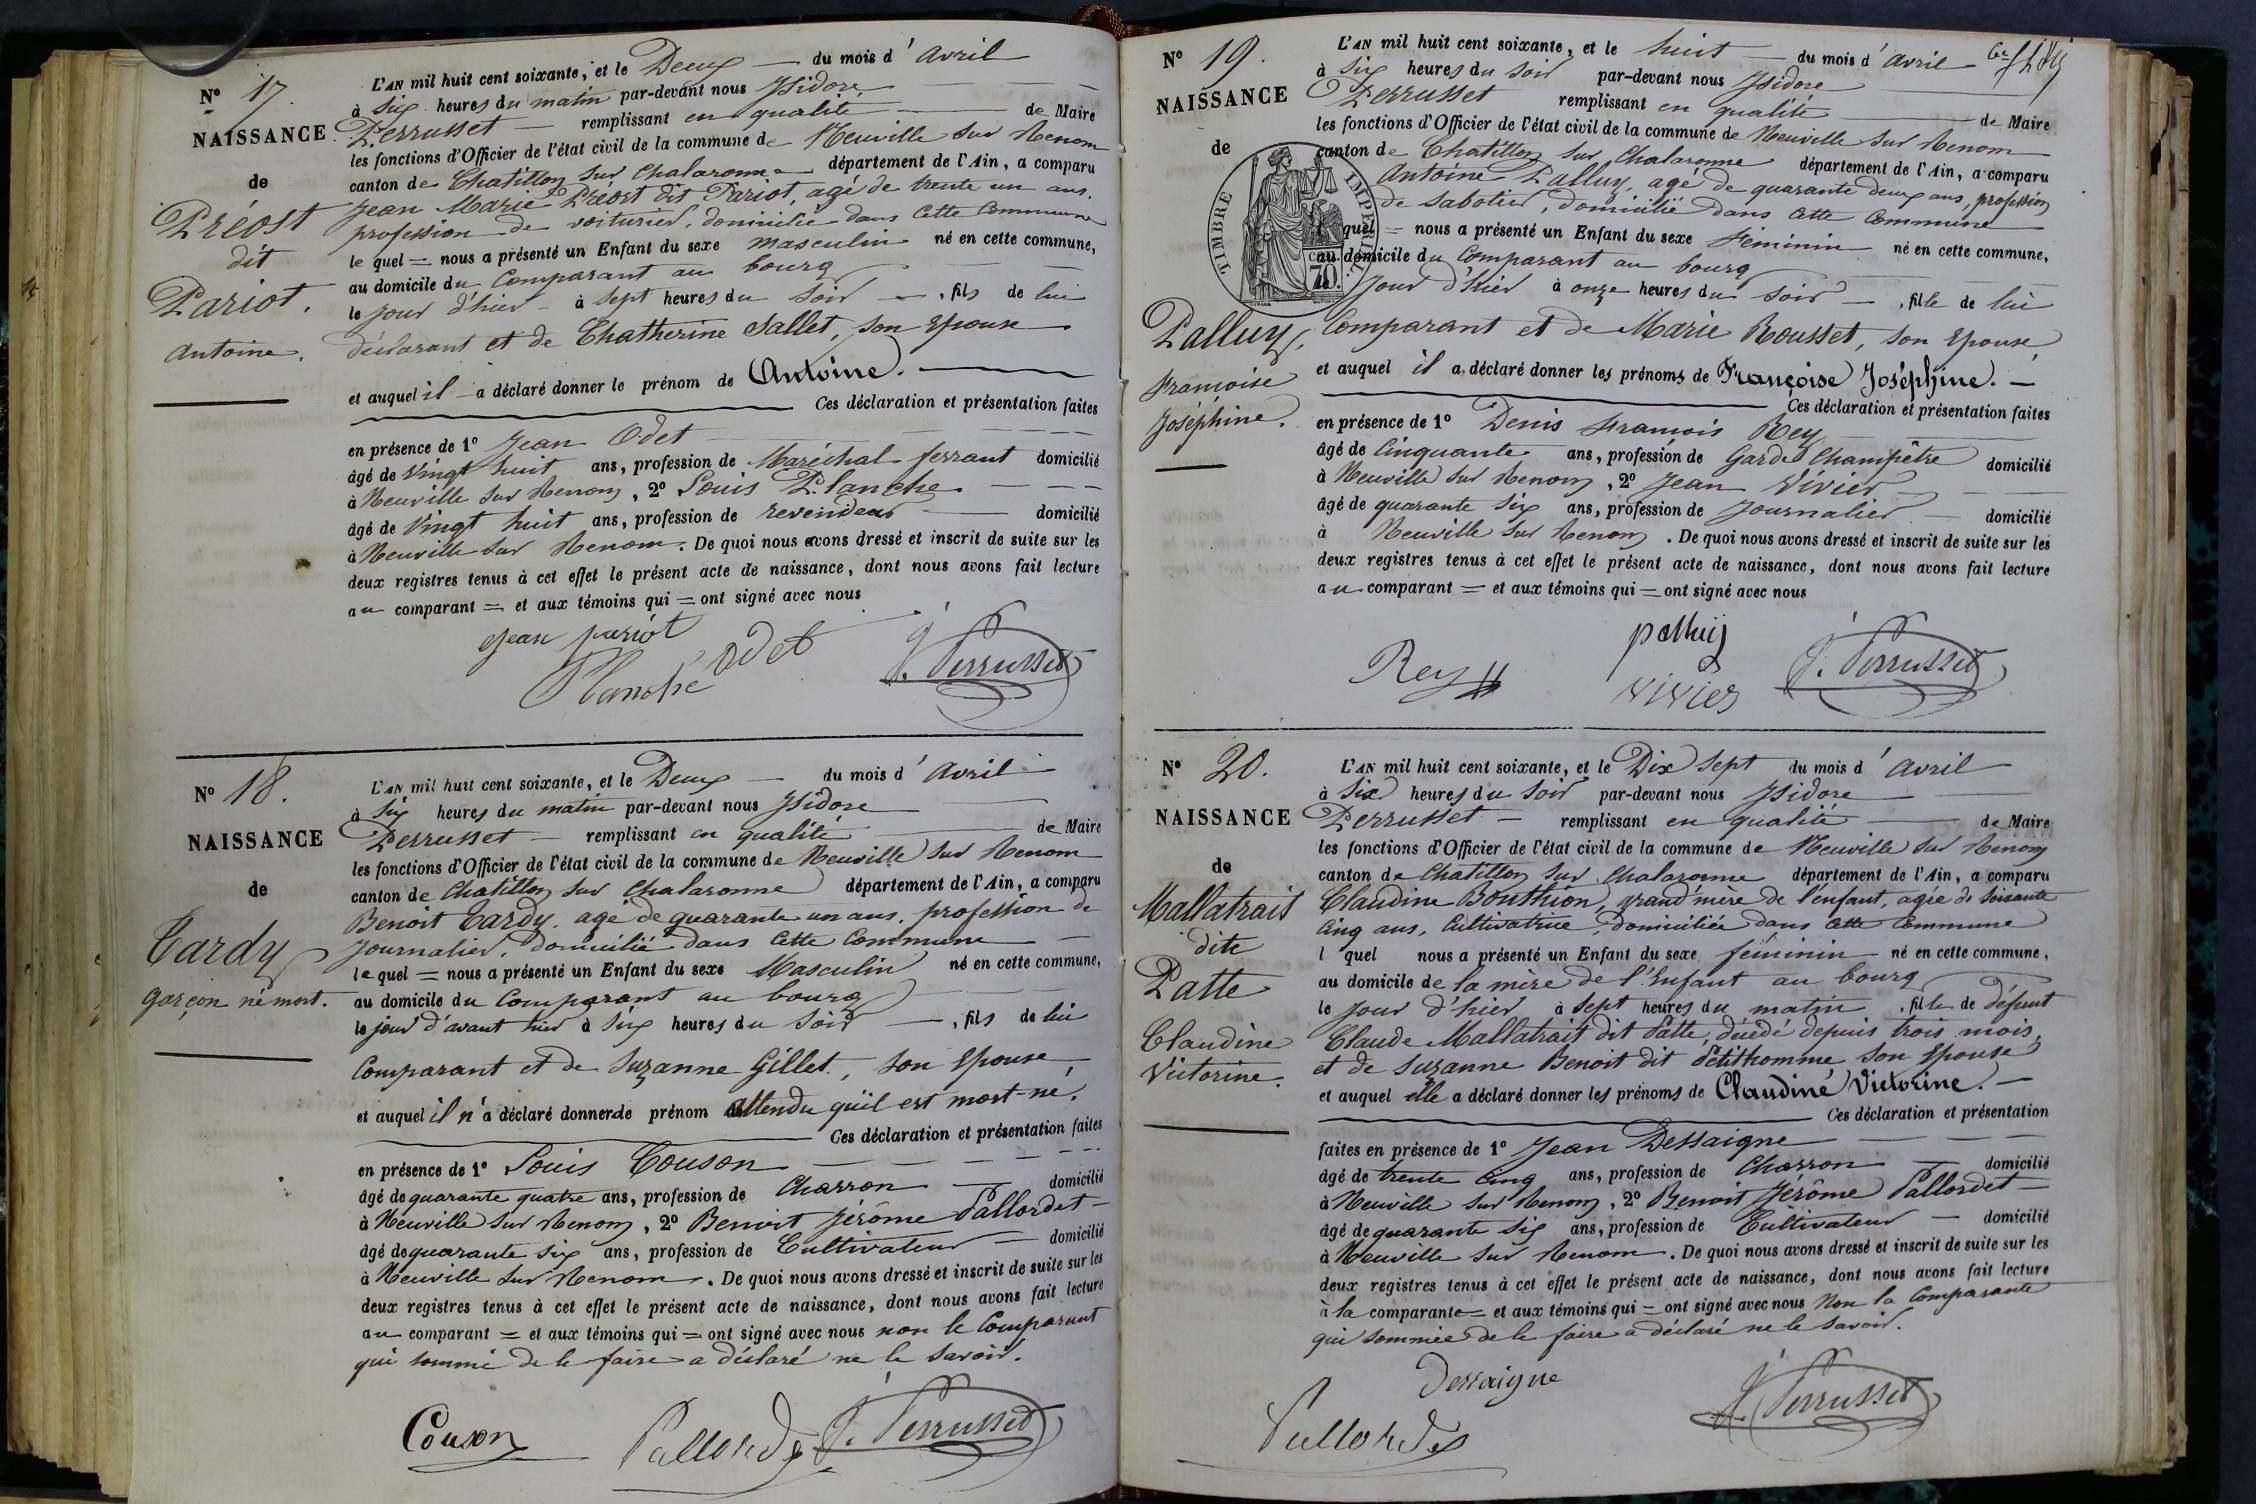 N° 17.
NAISSANCE
de
Préost
dit
Pariot.
Antoine.
L'AN mil huit cent soixante, et le Deux du mois d'avril
à six heures du matin par-devant nous Isidore
Perrusset remplissant en qualité de Maire
les fonctions d'Officier de l'état civil de la commune de Neuville sur Renom
canton de Chatillon sur Chalaronne département de l'Ain, a comparu
Jean Marie Préost dit Pariot, agé de trente un ans,
profession de voiturier, domicilié dans cette Commune
le quel = nous a présenté un Enfant du sexe masculin né en cette commune,
au domicile du Comparant au bourg
le jour d'hier à sept heures du soir, fils de lui
déclarant et de Chatherine Sallet, son Epouse
et auquel il a déclaré donner le prénom de Antoine.
Ces déclaration et présentation faites
en présence de 1° Jean Odet
âgé de vingt huit ans, profession de Maréchal ferrant domicilié
à Neuville sur Renom, 2° Louis Planche
âgé de vingt huit ans, profession de revendeur domicilié
à Neuville sur Renom. De quoi nous avons dressé et inscrit de suite sur les
deux registres tenus à cet effet le présent acte de naissance, dont nous avons fait lecture
au comparant = et aux témoins qui = ont signé avec nous
Jean pariot
Planche Odet J. Perrusset
N° 18.
NAISSANCE
de
Tardy
garçon né mort.
L'AN mil huit cent soixante, et le Deux du mois d'avril
à six heures du matin par-devant nous Isidore
Perrusset remplissant en qualité de Maire
les fonctions d'Officier de l'état civil de la commune de Neuville sur Renom
canton de Chatillon sur Chalaronne département de l'Ain, a comparu
Benoit Tardy, agé de quarante un ans, profession de
journalier, domicilié dans cette Commune
le quel = nous a présenté un Enfant du sexe Masculin né en cette commune,
au domicile du Comparant au bourg
le jour d'avant hier à six heures du soir, fils de lui
Comparant et de Suzanne Gillet, son Epouse
et auquel il n'a déclaré donner de prénom attendu qu'il est mort-né.
Ces déclaration et présentation faites
en présence de 1° Louis Couson
âgé de quarante quatre ans, profession de Charron domicilié
à Neuville sur Renom, 2° Benoit Jérôme Pallordet
âgé de quarante six ans, profession de Cultivateur domicilié
à Neuville sur Renom. De quoi nous avons dressé et inscrit de suite sur les
deux registres tenus à cet effet le présent acte de naissance, dont nous avons fait lecture
au comparant = et aux témoins qui = ont signé avec nous non le Comparant
qui sommé de le faire a déclaré ne le savoir.
Couson Pallordet J. Perrusset
N° 19.
NAISSANCE
de
Palluy,
Françoise
Joséphine.
TIMBRE IMPERIAL
70
L'AN mil huit cent soixante, et le huit du mois d'avril
à six heures du soir par-devant nous Isidore
Perrusset remplissant en qualité de Maire
les fonctions d'Officier de l'état civil de la commune de Neuville sur Renom
canton de Chatillon sur Chalaronne département de l'Ain, a comparu
Antoine Palluy, agé de quarante deux ans, profession
de sabotier, domicilié dans cette Commune
quel = nous a présenté un Enfant du sexe Féminin né en cette commune,
au domicile du Comparant au bourg
Jour d'hier à onze heures du soir, fille de lui
Comparant et de Marie Rousset, son Epouse,
et auquel il a déclaré donner les prénoms de Françoise Joséphine.
Ces déclaration et présentation faites
en présence de 1° Denis François Rey
âgé de Cinquante ans, profession de Garde Champêtre domicilié
à Neuville sur Renom, 2° Jean Vivier
âgé de quarante six ans, profession de Journalier domicilié
à Neuville sur Renom. De quoi nous avons dressé et inscrit de suite sur les
deux registres tenus à cet effet le présent acte de naissance, dont nous avons fait lecture
au comparant = et aux témoins qui = ont signé avec nous
palluy
Rey vivier J. Perrusset
N° 20.
NAISSANCE
de
Mallatrait
dite
Patte
Claudine
Victorine.
L'AN mil huit cent soixante, et le Dix sept du mois d'avril
à six heures du soir par-devant nous Isidore
Perrusset remplissant en qualité de Maire
les fonctions d'Officier de l'état civil de la commune de Neuville sur Renom
canton de Chatillon sur Chalaronne département de l'Ain, a comparu
Claudine Bouthion, grand'mère de l'enfant, agée de soixante
Cinq ans, Cultivatrice, domiciliée dans cette Commune
l quel nous a présenté un Enfant du sexe féminin né en cette commune,
au domicile de la mère de l'Enfant au bourg
le jour d'hier à sept heures du matin, fille de défunt
Claude Mallatrait dit Patte, décédé depuis trois mois,
et de Suzanne Benoit dit Petithomme son Epouse
et auquel elle a déclaré donner les prénoms de Claudine Victorine.
Ces déclaration et présentation
faites en présence de 1° Jean Dessaigne
âgé de trente cinq ans, profession de Charron domicilié
à Neuville sur Renom, 2° Benoit Jérôme Pallordet
âgé de quarante six ans, profession de Cultivateur domicilié
à Neuville sur Renom. De quoi nous avons dressé et inscrit de suite sur les
deux registres tenus à cet effet le présent acte de naissance, dont nous avons fait lecture
à la comparante = et aux témoins qui = ont signé avec nous Non la Comparante
qui sommée de le faire a déclaré ne le savoir.
Dessaigne
Pallordet J. Perrusset